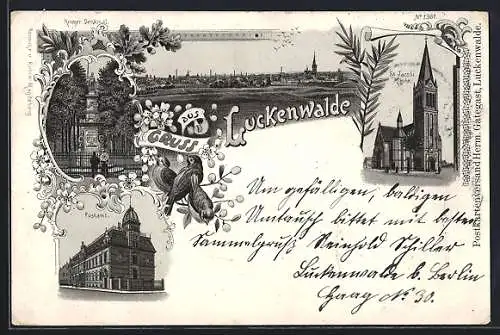 Krieger Denkmal.
No 1381.
GRUSS AUS
Luckenwalde
St. Jacobi Kirche.
Postamt.
Postkartenversand Herm. Gategast, Luckenwalde.
Um gefälligen, baldigen
Umtausch bittet mit besten
Sammelgruß Reinhold Schiller
Luckenwalde b. Berlin
Haag No 30.